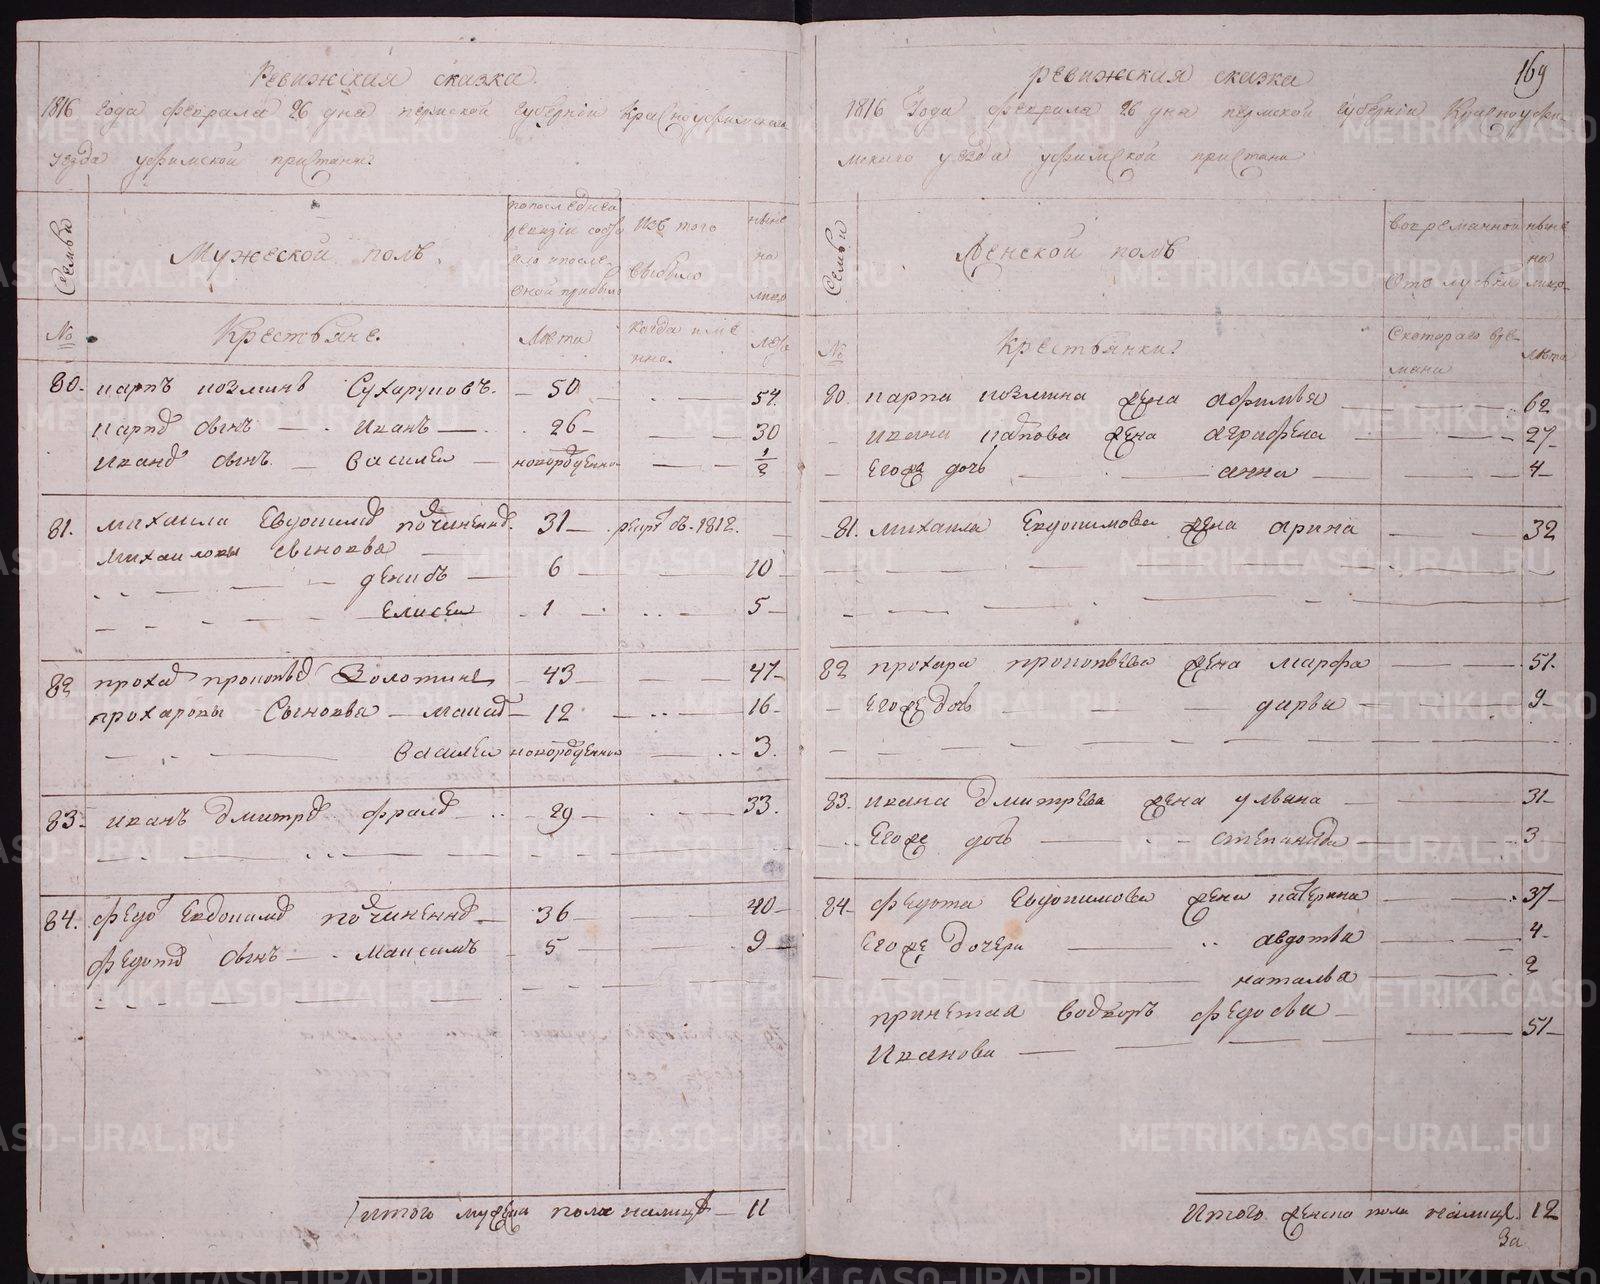 Ревижская сказка
1816 Года февраля 26 дня пермской губернии Красноуфимскаго
уезда уфимской пристани
Семьи
Мужеской полъ.
по последней ревизии состояло и после оной прибыло
Изъ того выбыло
ныне на лицо
№
Крестьяне.
Лета
когда имено.
лета
80. карпъ козминъ Сухаруковъ. — 50 — 54.
карпо сынъ — Иванъ — 26 — 30
Ивано сынъ — Василеи — новорожденно — 1/2
81. михаила Евдокимо починенко. 31 — рекрт въ 1812.
михаиловы сыновья
денисъ — 6 — 10
Елисеи — 1 — 5
82 прохо прокопье Золотине — 43 — 47
прохоровы Сыновья — макаръ — 12 — 16
Василеи новорожденно — 3.
83. иванъ дмитре фроло — 29 — 33.
84. федо Евдокимо починенко — 36 — 40
федото сынъ — Максимъ — 5 — 9
Итого мужска пола налице — 11
169
ревижская сказка
1816 Года февраля 26 дня пермской губернии Красноуфи
мскаго уезда уфимской пристани
Семьи
Женской полъ
во временной отлучке
ныне на лицо
№
Крестьянки
Скотораго времени
лета
80 карпа козмина жена афимья — 62
ивана карпова жена аграфена — 27
Егоже дочь — анна — 4
81. михаила Евдокимова жена арина — 32
82 прохора прокопьева жена марфа — 51.
Егоже дочь — дарья — 9
83. ивана дмитрева жена ульяна — 31
Егоже дочь — степанида — 3
84 федота Евдокимова жена катерина — 37
Егоже дочери — авдотья — 4
наталья — 2
принетая водворъ федосья — 51
Иванова
Итого женска пола налице. 12
За
METRIKI.GASO-URAL.RU